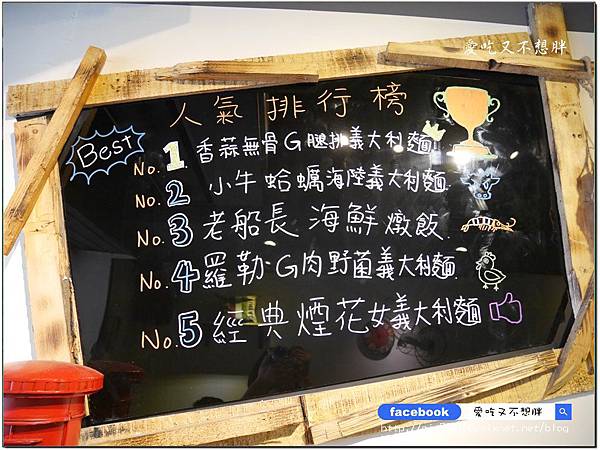 愛吃又不想胖
人氣排行榜
Best
No.1 香蒜無骨G腿排義大利麵
No.2 小牛蛤蠣海陸義大利麵
No.3 老船長海鮮燉飯
No.4 羅勒G肉野菇義大利麵
No.5 經典煙花女義大利麵
facebook 愛吃又不想胖